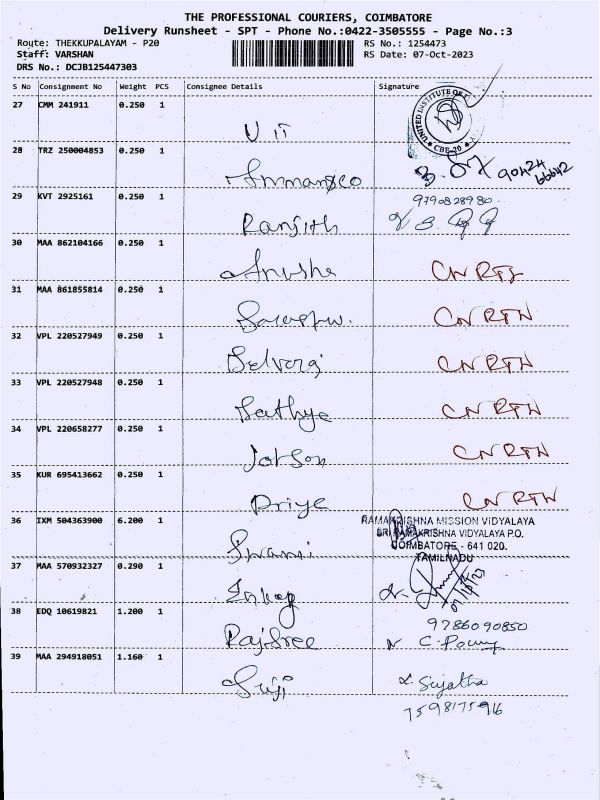 THE PROFESSIONAL COURIERS, COIMBATORE
Delivery Runsheet - SPT - Phone No.:0422-3505555 - Page No.:3
Route: THEKKUPALAYAM - P20 RS No.: 1254473
Staff: VARSHAN RS Date: 07-Oct-2023
DRS No.: DCJB125447303
S No Consignment No Weight PCS Consignee Details Signature
27 CMM 241911 0.250 1
UNITED INSTITUTE OF
CBE-20
U iT
28 TRZ 250004853 0.250 1
90424
66642
29 KVT 2925161 0.250 1
9790828980
Ranjith
30 MAA 862104166 0.250 1
Anusha CN RTN
31 MAA 861855814 0.250 1
CN RTN
32 VPL 220527949 0.250 1
Selvaraj CN RTN
33 VPL 220527948 0.250 1
Sathya CN RTN
34 VPL 220658277 0.250 1
Jotson CN RTN
35 KUR 695413662 0.250 1
Priya CN RTN
36 IXM 504363900 6.200 1
RAMAKRISHNA MISSION VIDYALAYA
SRI RAMAKRISHNA VIDYALAYA P.O.
COIMBATORE - 641 020.
TAMILNADU
Swami
37 MAA 570932327 0.290 1
38 EDQ 10619821 1.200 1
9786090850
RajSree
39 MAA 294918051 1.160 1
Suji Sujatha
7598175916